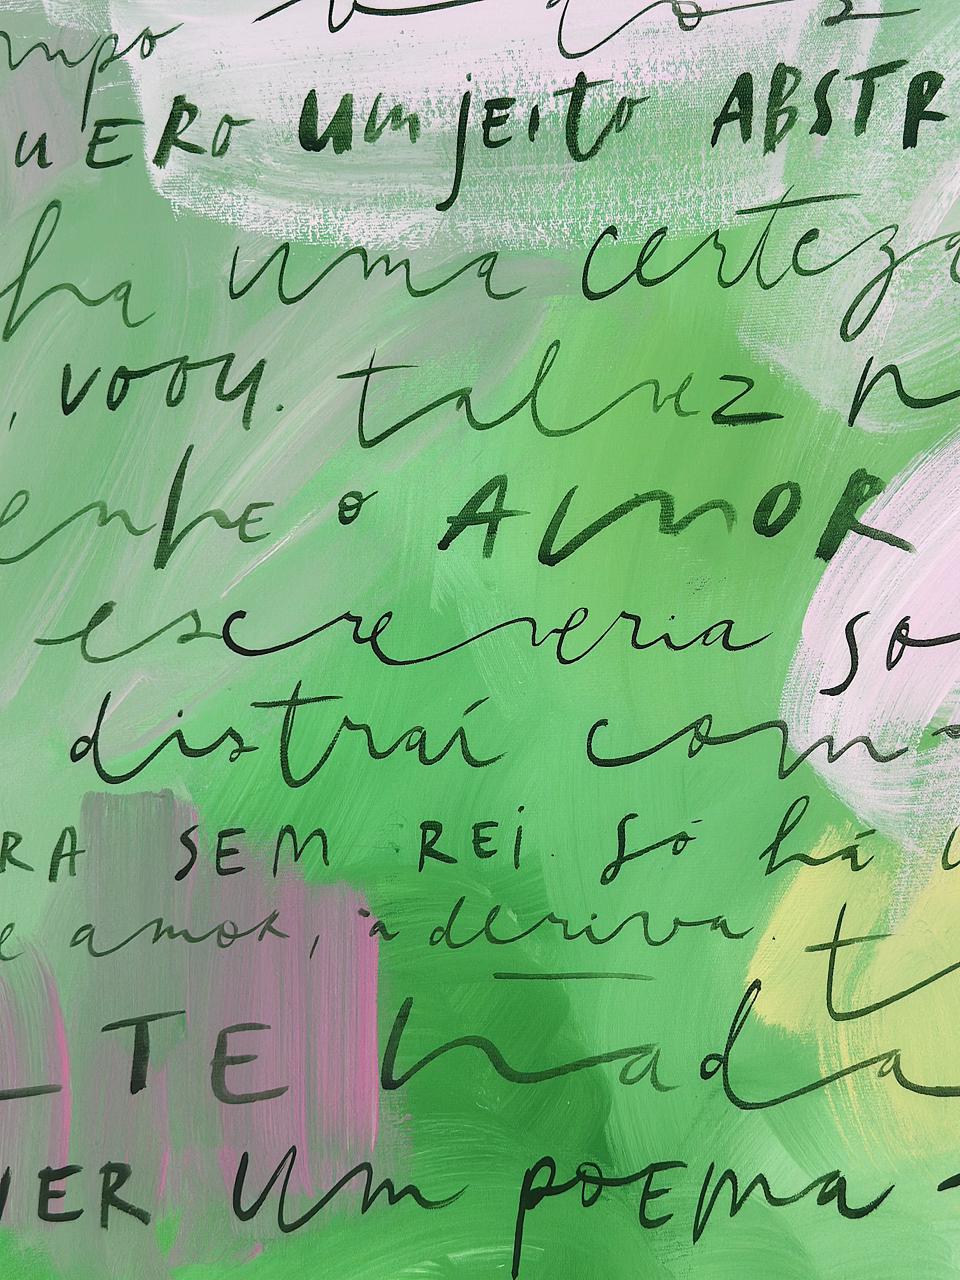 mpo
uERo um jeito ABSTR
ha uma certeza
, voou. talvez n
enhe o AmoR
escreveria so
distraí com
RA SEM REi. Só há
e amor, à deriva. t
TE nada
VER um poema -